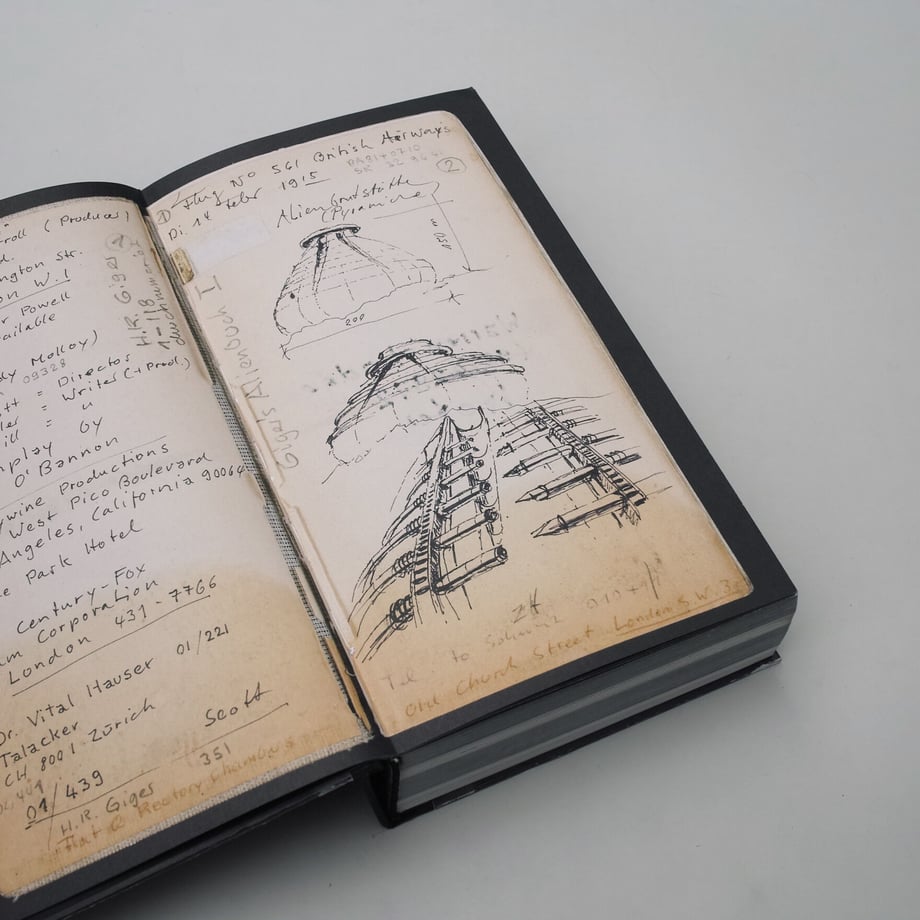 roll (Producer)
ngton Str.
on W.1
r Powell
vailable
dy Molloy)
09328
ott = Director
ler = Writer (+ Prod.)
ill = "
nplay by
O'Bannon
ywine Productions
West Pico Boulevard
Angeles, California 90064
e Park Hotel
century-Fox
m Corporation
London 431-7766
Dr. Vital Hauser 01/221
Talacker
CH 8001 Zürich
Scott
01/439
351
H.R. Giger
Flat @ Rectory Chambers
H.R. Giger 2
1-118
① Flug No 561 British Airways
②
Di. 14 Febr 1915
Alien
(Pyramide)
50 m
200
Gigers Alien Buch I
Tel. to
Old Church Street London S.W. 3